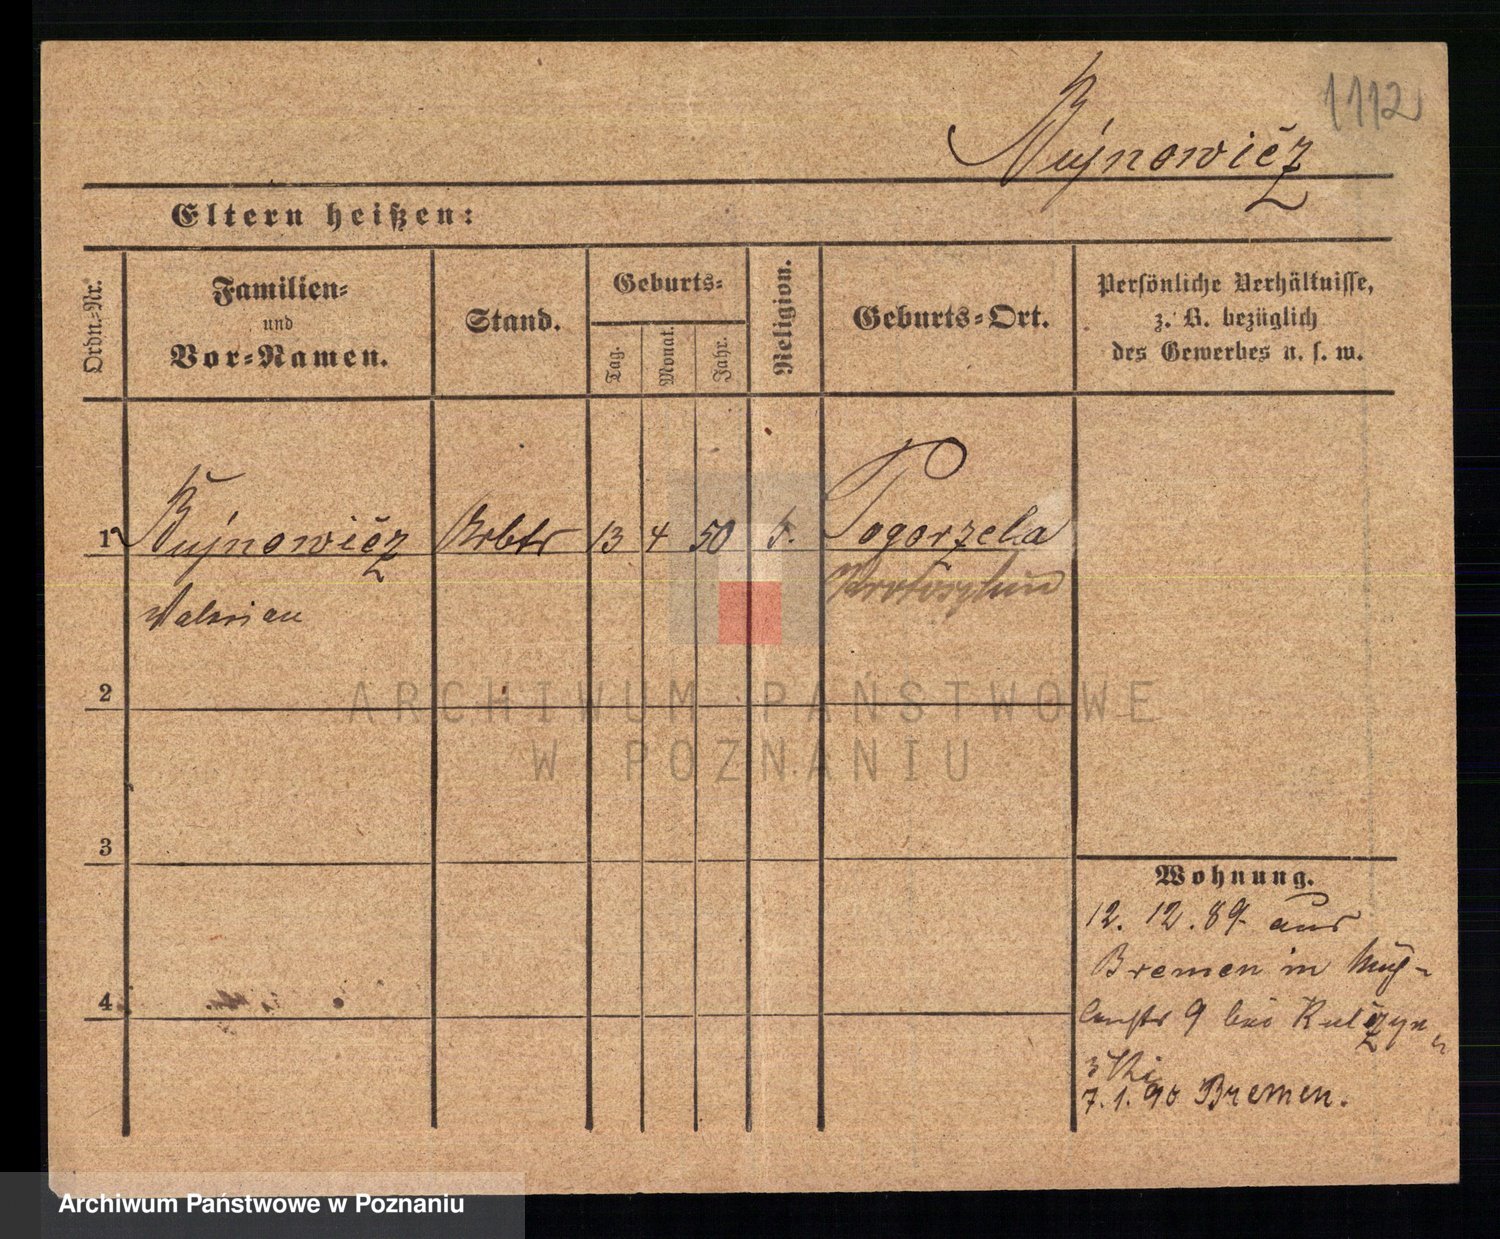 1112
Bujnowicz
Eltern heißen:
Ordn.-Nr.
Familien-
und
Vor-Namen.
Stand.
Geburts-
Tag.
Monat.
Jahr.
Religion.
Geburts-Ort.
Persönliche Verhältnisse,
z. B. bezüglich
des Gewerbes u. s. w.
1 Bujnowicz Arbtr 13 4 50 k. Pogorzela
Krotoschin
Valerian
2
ARCHIWUM PAŃSTWOWE
W POZNANIU
3
Wohnung.
12. 12. 89. aus
Bremen in Müh-
lenstr 9 bei
4
7. 1. 90 Bremen.
Archiwum Państwowe w Poznaniu